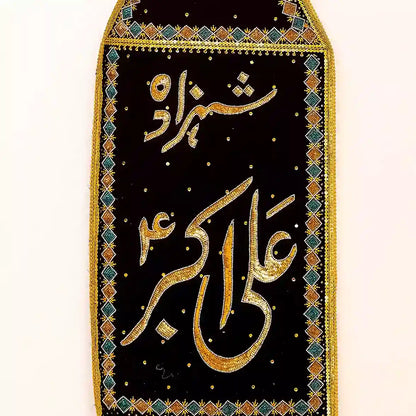 شہزادہ
علی اکبرؑ